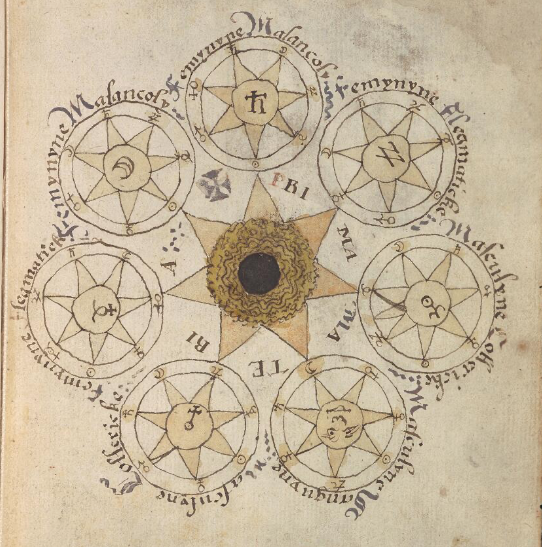 Femynyne Malancoly
Femynyne Fleamatiche
Masculyne Collericke
Masculyne Sanguyne
Masculyne Collericke
Femynyne Fleamatick
Femynyne Malancoly
PRI
MA
MA
TE
RI
A